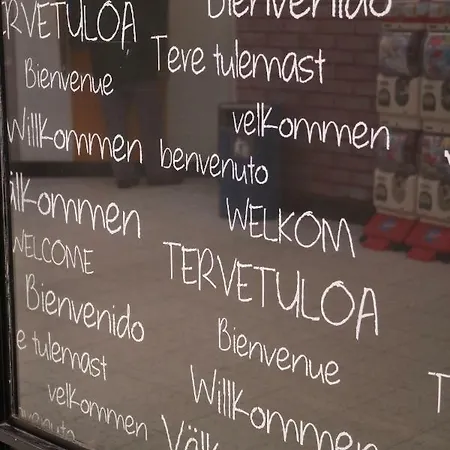 TERVETULOA
Bienvenido
Teve tulemast
Bienvenue
velkommen
Willkommen
benvenuto
Välkommen
WELKOM
WELCOME
TERVETULOA
Bienvenido
Bienvenue
Teve tulemast
Willkommen
velkommen
benvenuto
Välk
T